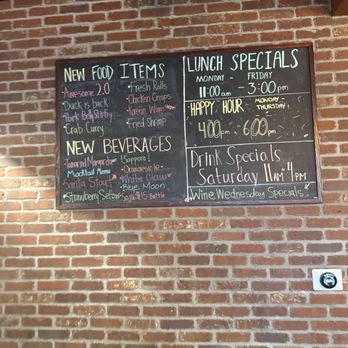 NEW FOOD ITEMS
Awesome 2.0
Duck is back
Pork Belly Stirfry
Crab Curry
Fresh Rolls
Chicken Crisps
Korean Wings
Fried Shrimp
NEW BEVERAGES
Tamarind Margarita
Mocktail Menu
Santa Stout
Strawberry Seltzer
Sapporo!
Orangesicle
White Claw
Blue Moon
$15 Bottle
LUNCH SPECIALS
MONDAY - FRIDAY
11:00am - 3:00pm
HAPPY HOUR - MONDAY - THURSDAY
4:00pm - 6:00pm
Drink Specials
Saturday 11AM-4PM
Wine Wednesday Specials